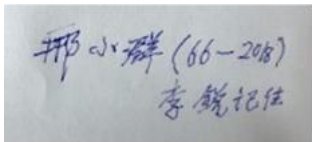 邢小群(66-2018)
李锐记住